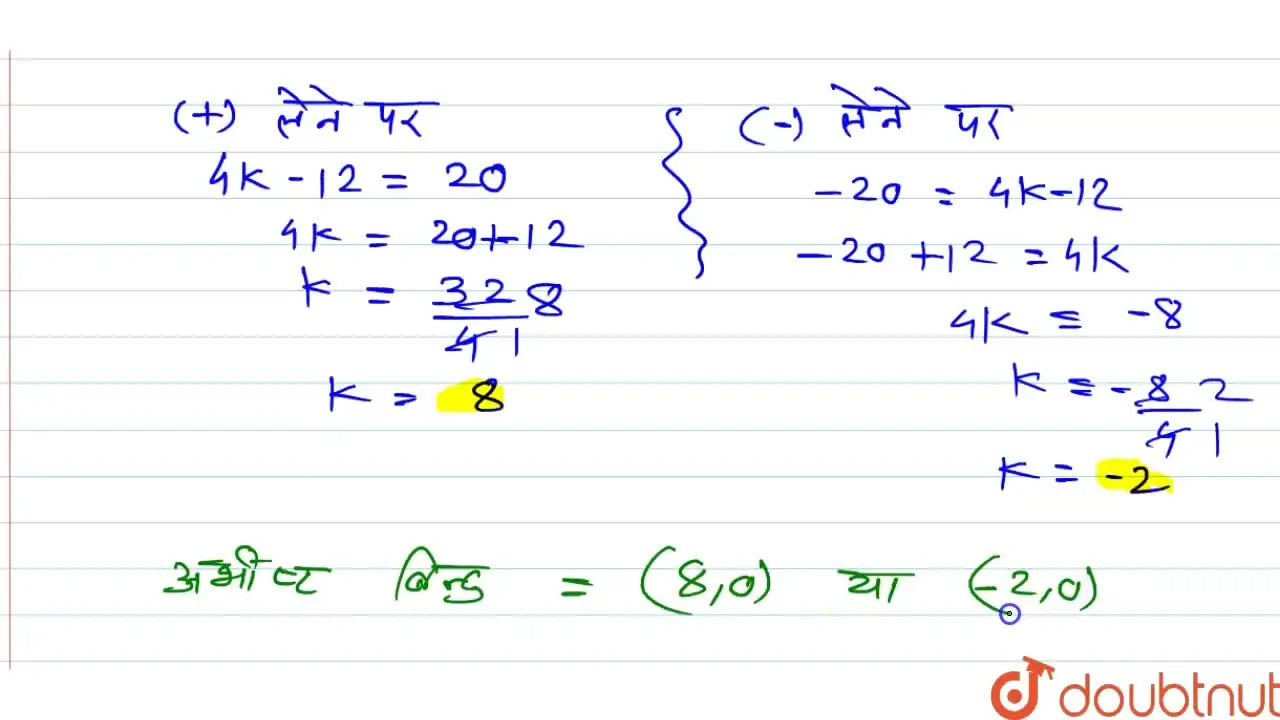 (+) लेने पर
4k - 12 = 20
4k = 20+12
k = 32 8
4 1
k = 8
(-) लेने पर
-20 = 4k-12
-20 +12 = 4k
4k = -8
k = - 8 2
4 1
k = -2
अभीष्ट बिन्दु = (8,0) या (-2,0)
doubtnut